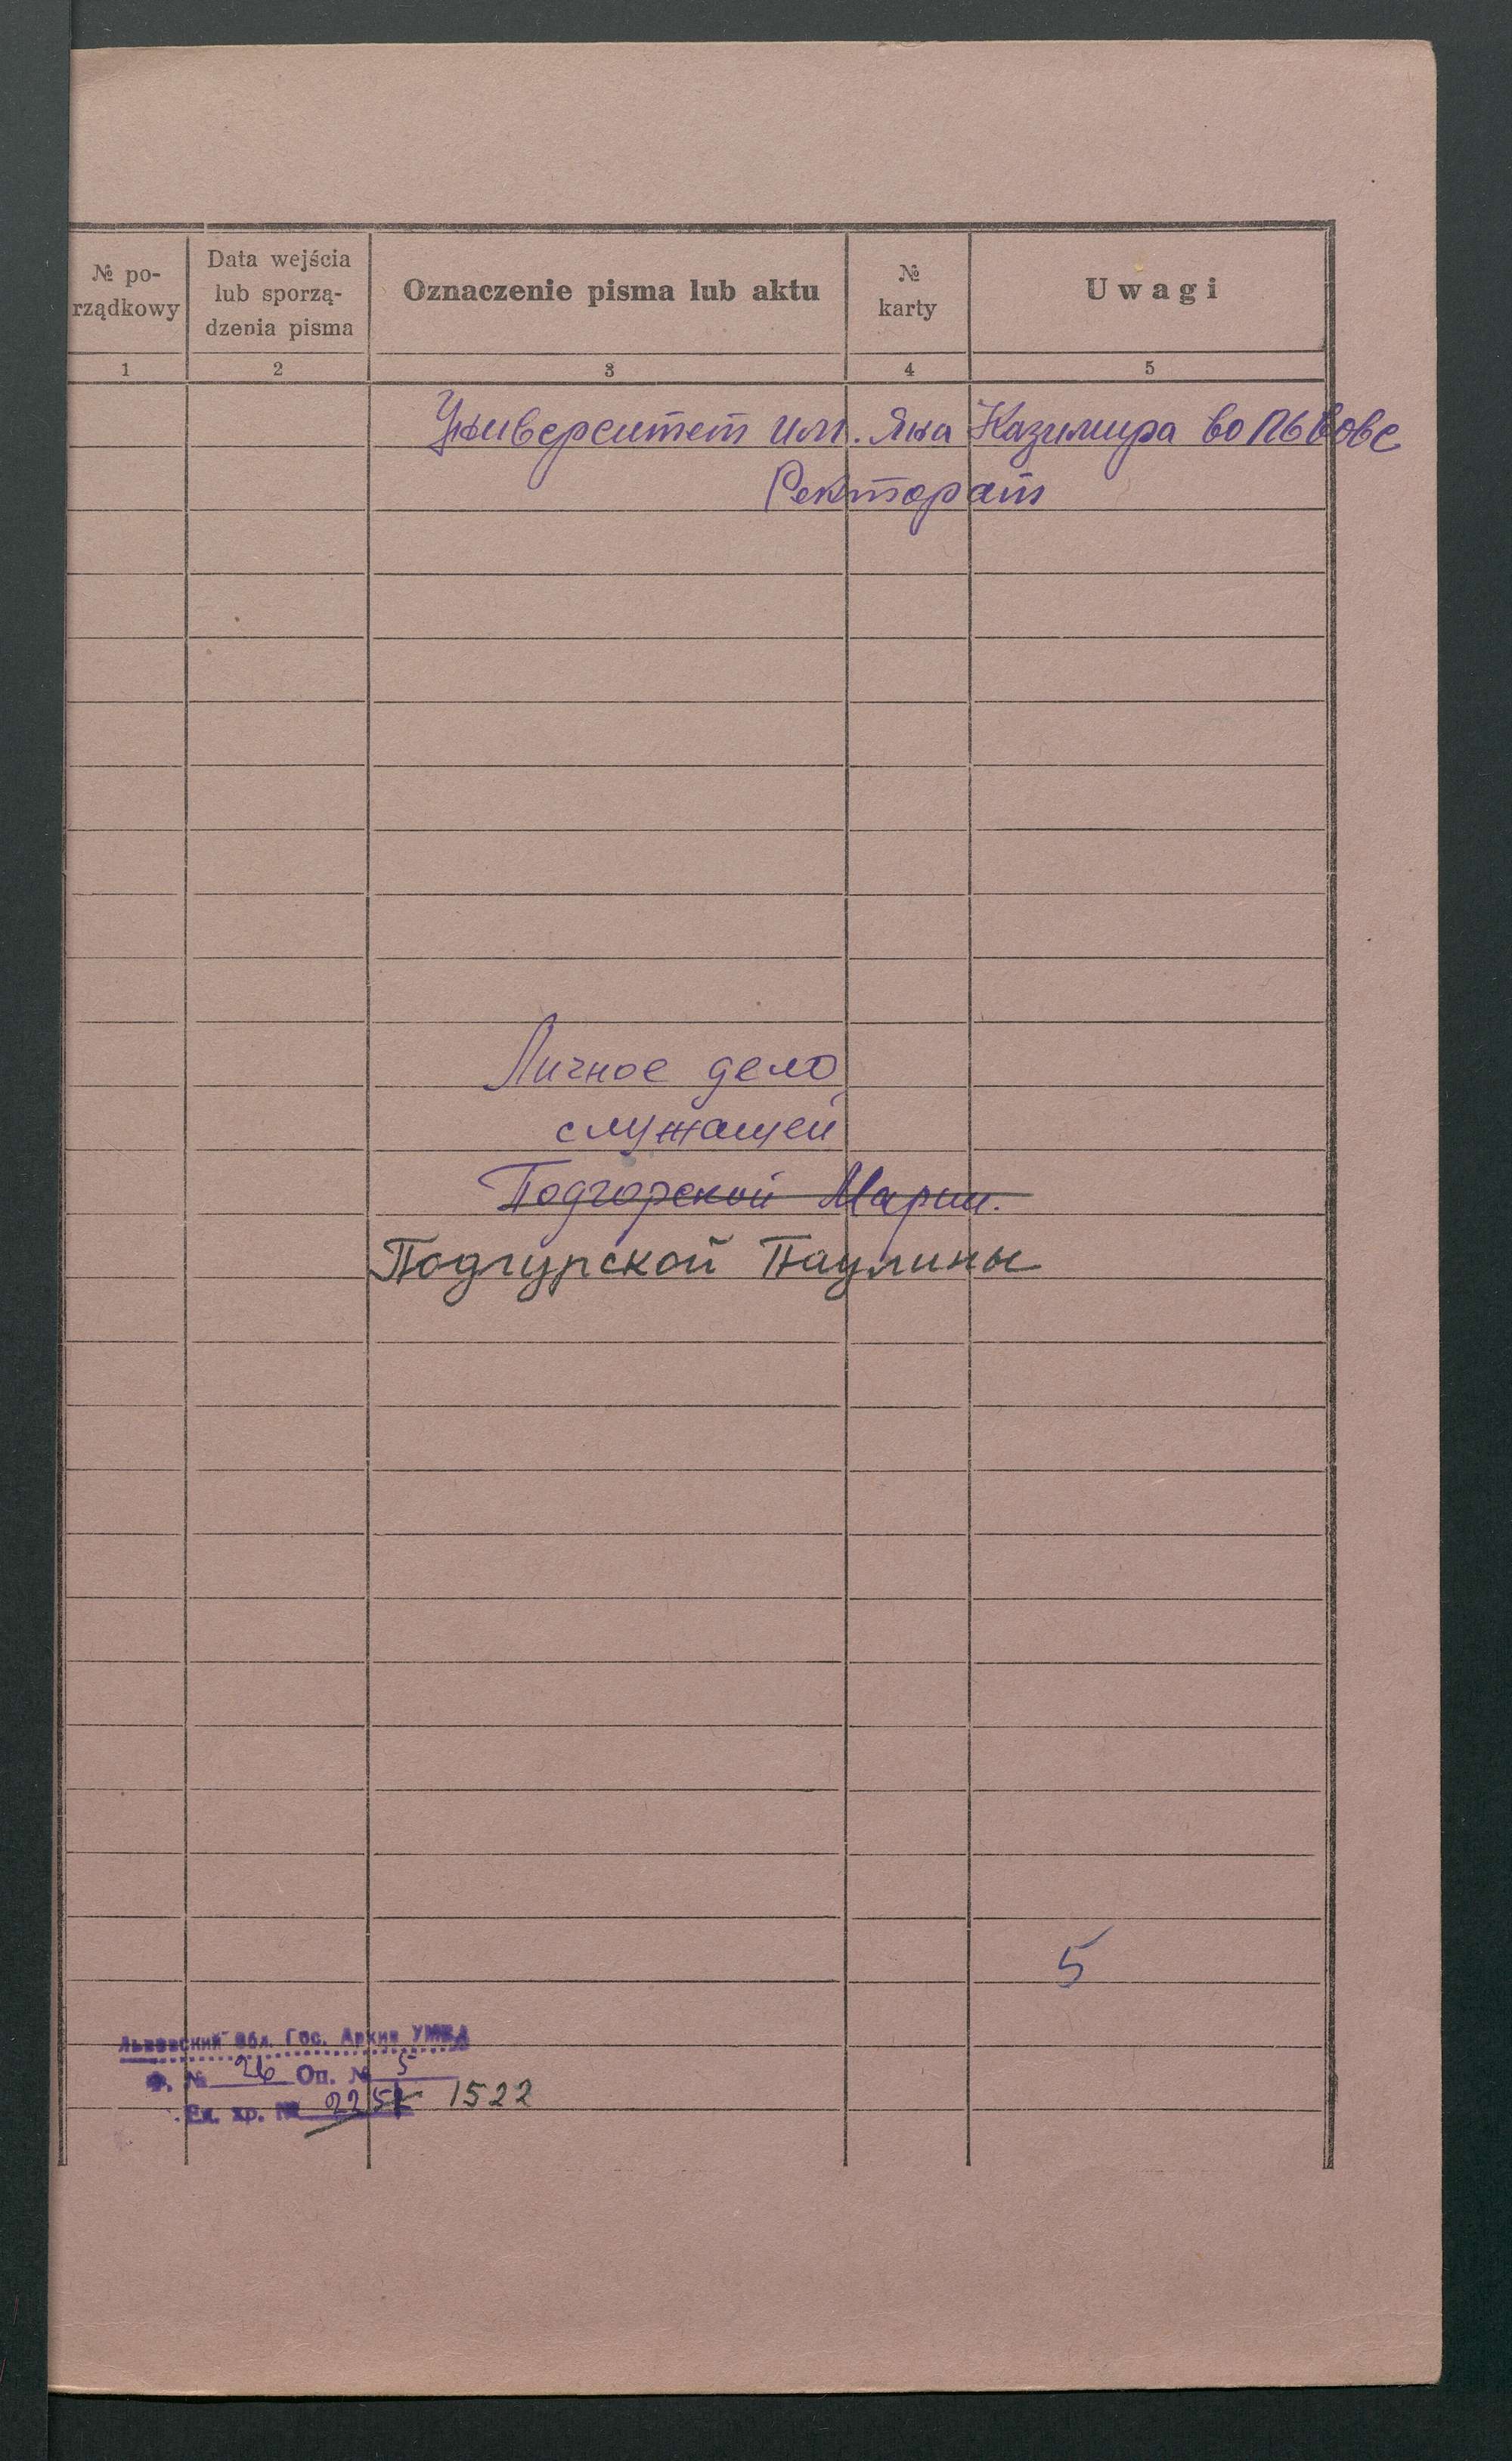 № po-
rządkowy
Data wejścia
lub sporzą-
dzenia pisma
Oznaczenie pisma lub aktu
№
karty
Uwagi
1 2 3 4 5
Университет им. Яна Казимира во Львове
Ректорат
Личное дело
служащей
Подгорской Марии.
Подгурской Паулины
5
Львовский Обл. Гос. Архив УМВД
Ф. № 26 Оп. № 5
Ед. хр. № 1522